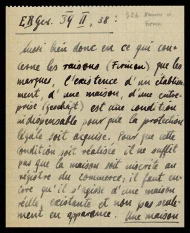 E.R.Ges. 34 II, 38:
Aussi bien donc en ce que con-
cerne les raisons (Firmen) que les
marques, l'existence d'un établisse-
ment, d'une maison, d'une entre-
prise (Geschäft) est une condition
indispensable pour que la protection
légale soit acquise. Pour que cette
condition soit réalisée il ne suffit
pas que la maison soit inscrite au
registre du commerce, il faut en-
core qu'il s'agisse d'une maison
réelle, existante et non pas seule-
ment en apparence. Une maison